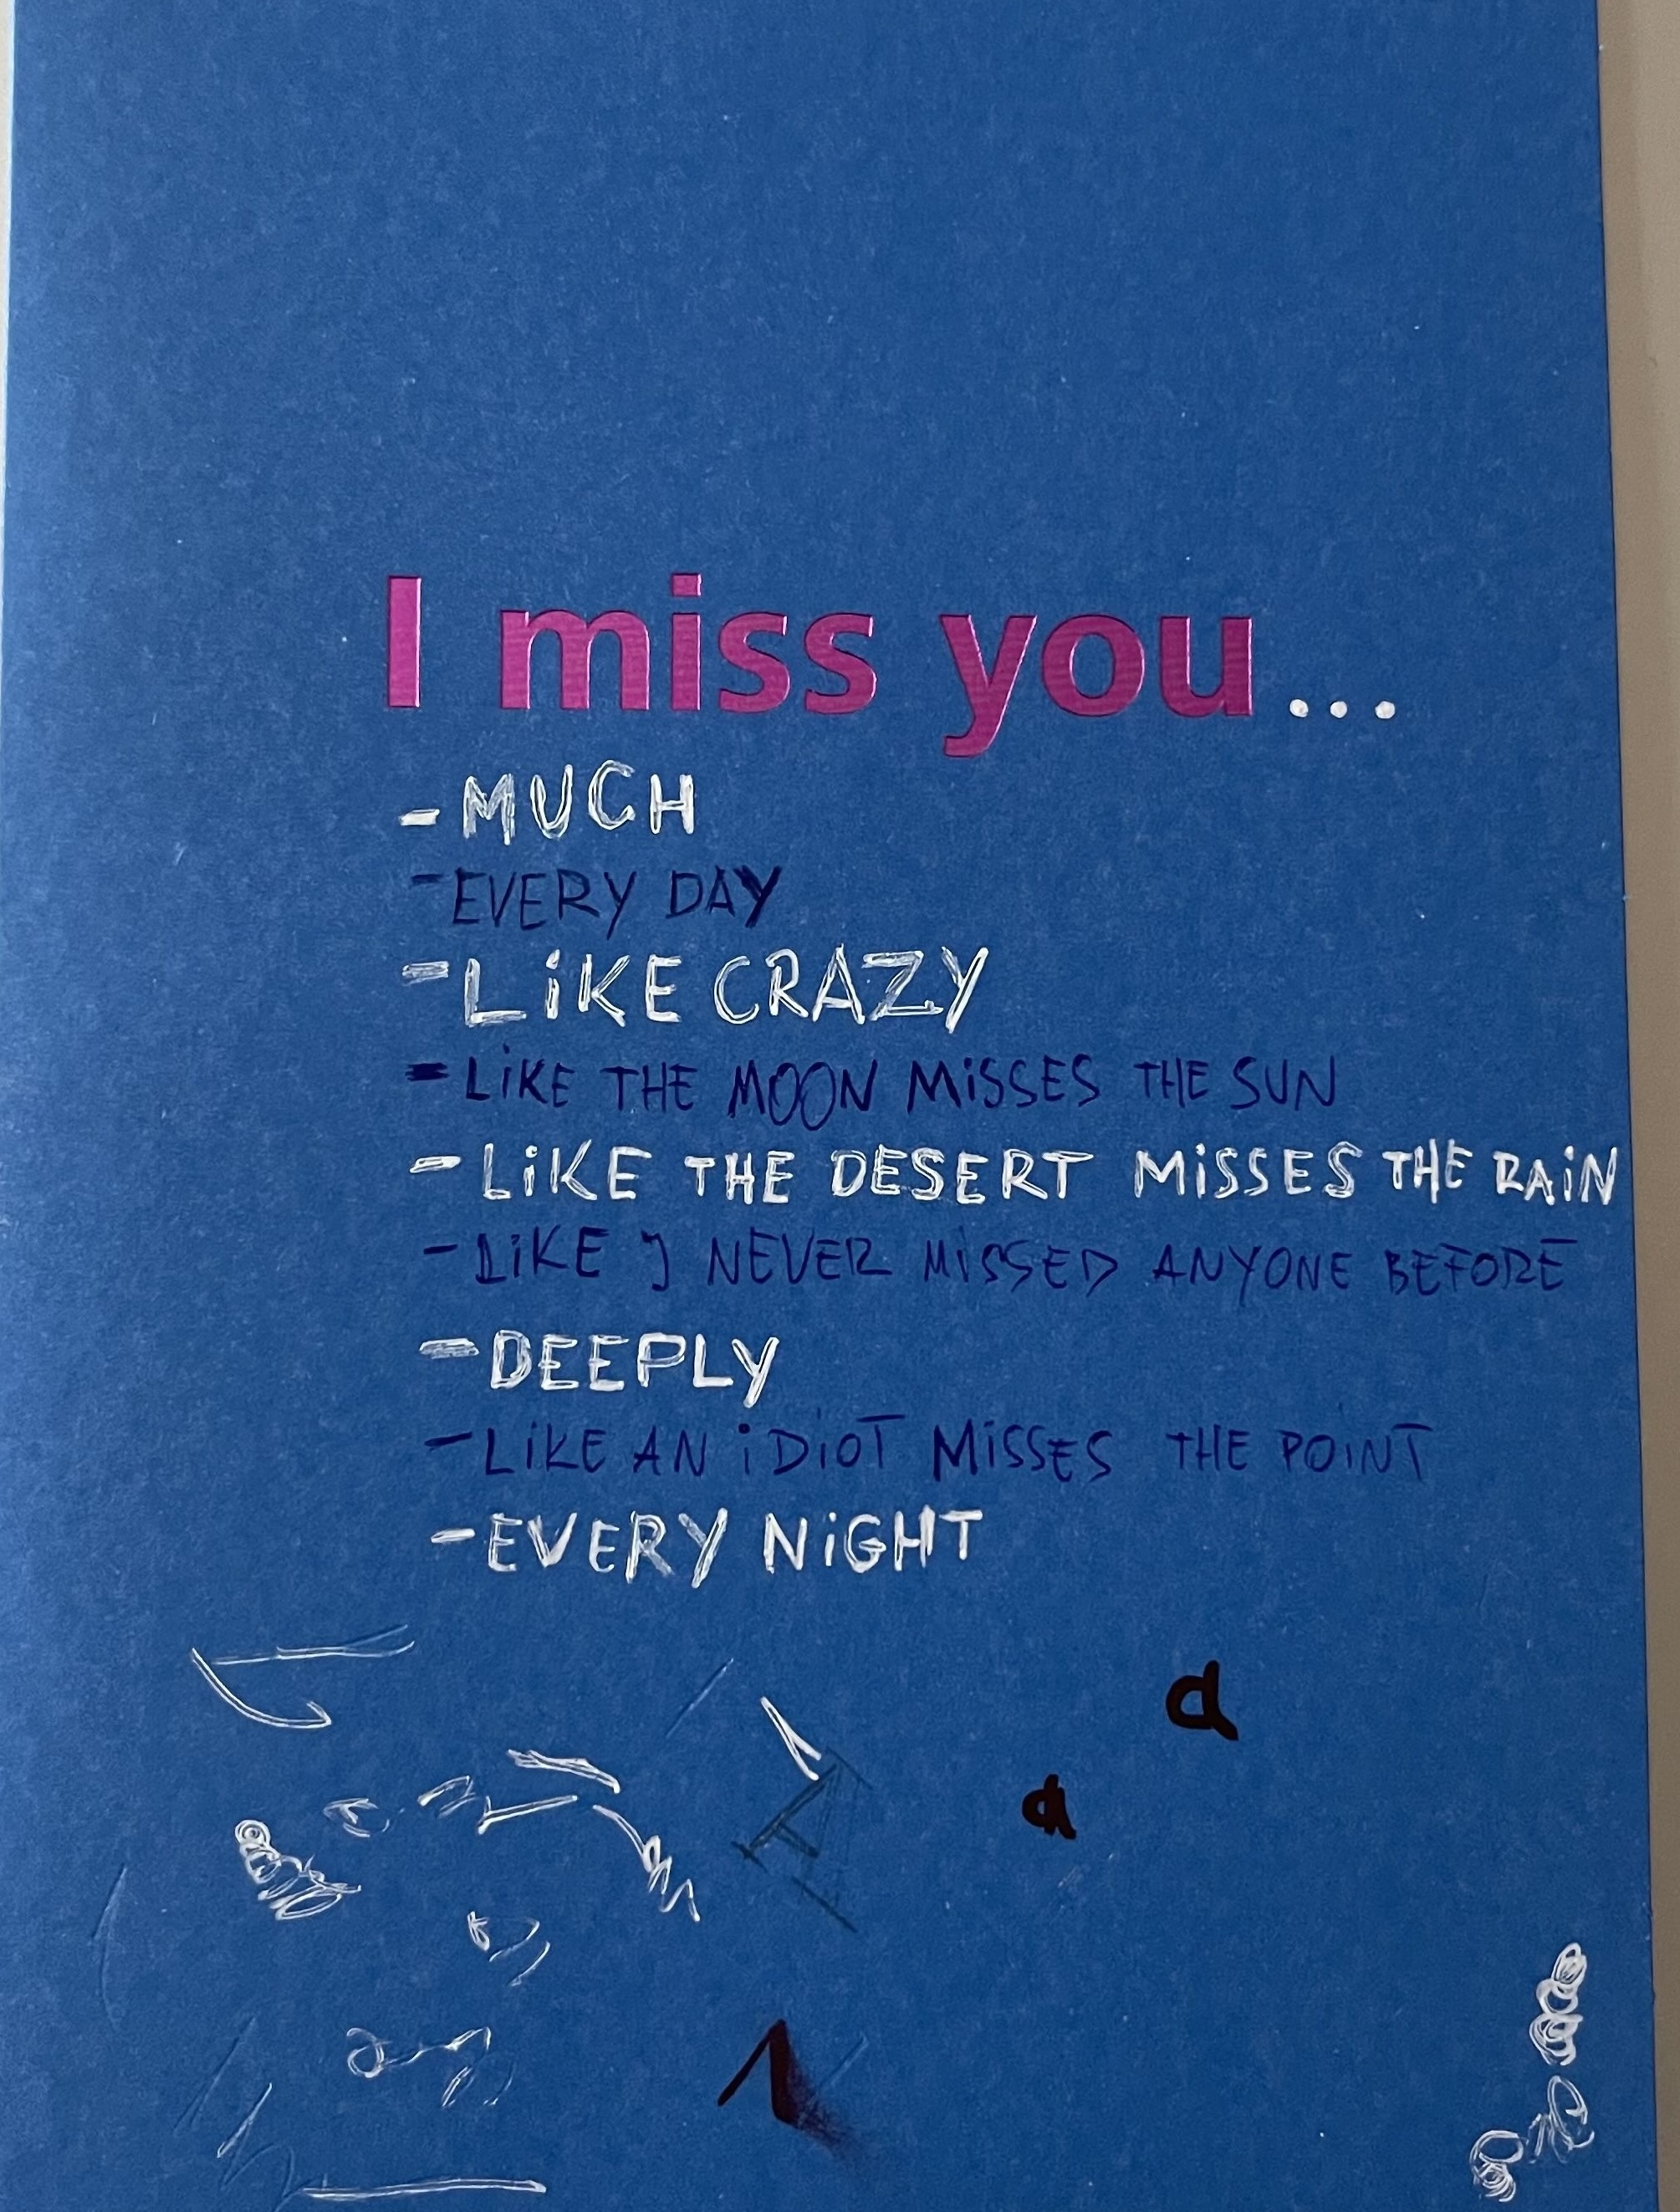 I miss you...
- MUCH
- EVERY DAY
- LiKE CRAZY
- LiKE THE MOON MiSSES THE SUN
- LiKE THE DESERT MiSSES THE RAiN
- LiKE I NEVER MiSSED ANYONE BEFORE
- DEEPLY
- LiKE AN iDiOT MiSSES THE POiNT
- EVERY NiGHT
a
A
a